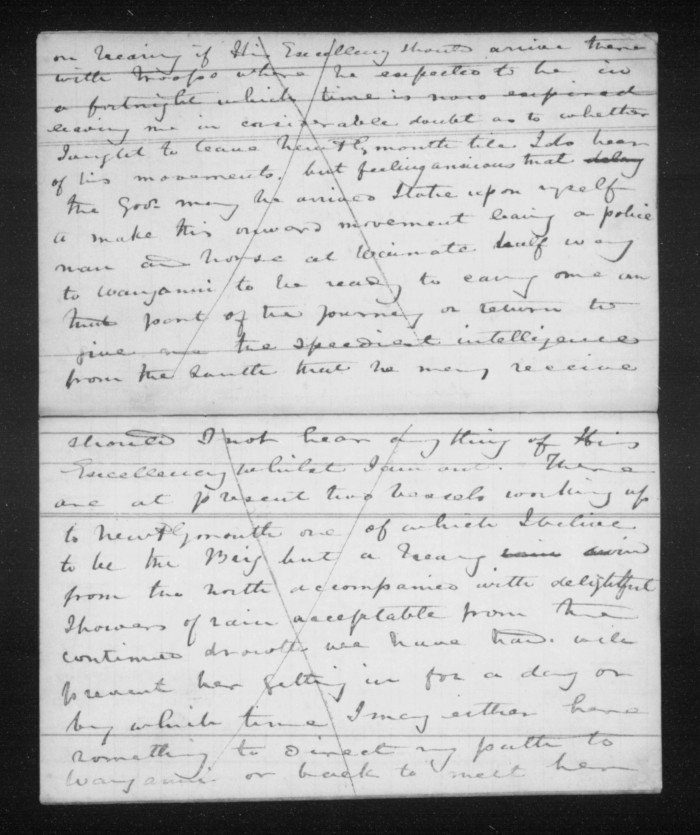 on hearing if His Excellency should arrive there
with troops where he expected to be in
a fortnight which time is now expired
leaving me in considerable doubt as to whether
I ought to leave New Plymouth till I do hear
of his movements. but feeling anxious that delay
the Govr may be arrived I take upon myself
to make this onward movement leaving a police
man and horse at Waimate half way
to Wanganui to be ready to carry me on
that part of the journey or return to
give me the speediest intelligence
from the South that he may receive
should I not hear anything of His
Excellency whilst I am out. There
are at present two vessels working up
to New Plymouth one of which I believe
to be the Brig but a heavy wind
from the north accompanied with delightful
showers of rain acceptable from the
continued drowth we have had. will
prevent her getting in for a day or
by which time I may either have
something to direct my path to
Wanganui or back to meet her